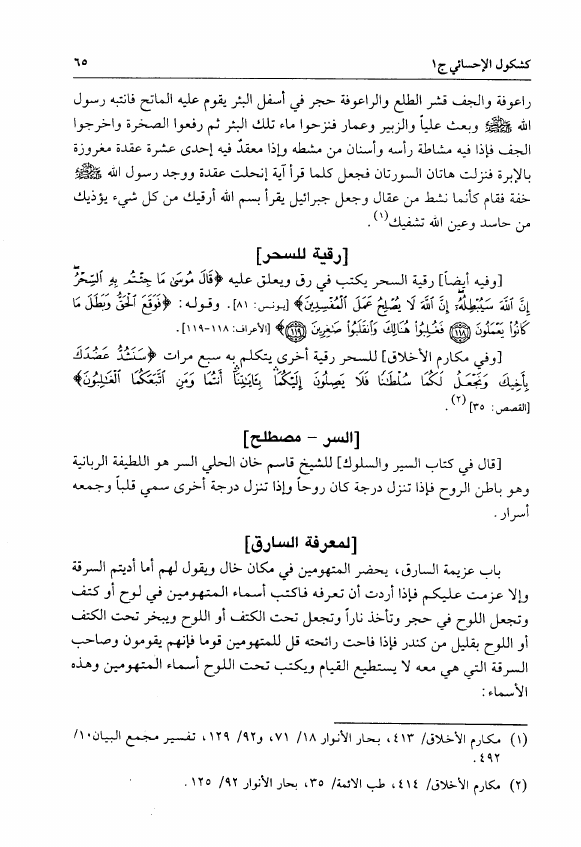 كشكول الإحسائي ج١ ٦٥
راعوفة والجف قشر الطلع والراعوفة حجر في أسفل البئر يقوم عليه الماتح فانتبه رسول
الله ﷺ وبعث علياً والزبير وعمار فنزحوا ماء تلك البئر ثم رفعوا الصخرة واخرجوا
الجف فإذا فيه مشاطة رأسه وأسنان من مشطه وإذا معقدٌ فيه إحدى عشرة عقدة مغروزة
بالإبرة فنزلت هاتان السورتان فجعل كلما قرأ آية إنحلت عقدة ووجد رسول الله ﷺ
خفة فقام كأنما نشط من عقال وجعل جبرائيل يقرأ بسم الله أرقيك من كل شيء يؤذيك
من حاسد وعين الله تشفيك(١).
[رقية للسحر]
[وفيه أيضاً] رقية السحر يكتب في رق ويعلق عليه ﴿قَالَ مُوسَىٰ مَا جِئْتُم بِهِ ٱلسِّحْرُۖ
إِنَّ ٱللَّهَ سَيُبْطِلُهُۥٓ إِنَّ ٱللَّهَ لَا يُصْلِحُ عَمَلَ ٱلْمُفْسِدِينَ﴾ [يونس: ٨١]. وقوله: ﴿فَوَقَعَ ٱلْحَقُّ وَبَطَلَ مَا
كَانُوا۟ يَعْمَلُونَ ۝١١٨ فَغُلِبُوا۟ هُنَالِكَ وَٱنقَلَبُوا۟ صَٰغِرِينَ ۝١١٩﴾ [الأعراف: ١١٨-١١٩].
[وفي مكارم الأخلاق] للسحر رقية أخرى يتكلم به سبع مرات ﴿سَنَشُدُّ عَضُدَكَ
بِأَخِيكَ وَنَجْعَلُ لَكُمَا سُلْطَٰنًا فَلَا يَصِلُونَ إِلَيْكُمَا بِـَٔايَٰتِنَآ أَنتُمَا وَمَنِ ٱتَّبَعَكُمَا ٱلْغَٰلِبُونَ﴾
[القصص: ٣٥](٢).
[السر - مصطلح]
[قال في كتاب السير والسلوك] للشيخ قاسم خان الحلي السر هو اللطيفة الربانية
وهو باطن الروح فإذا تنزل درجة كان روحاً وإذا تنزل درجة أخرى سمي قلباً وجمعه
أسرار.
[لمعرفة السارق]
باب عزيمة السارق، يحضر المتهومين في مكان خال ويقول لهم أما أديتم السرقة
وإلا عزمت عليكم فإذا أردت أن تعرفه فاكتب أسماء المتهومين في لوح أو كتف
وتجعل اللوح في حجر وتأخذ ناراً وتجعل تحت الكتف أو اللوح ويبخر تحت الكتف
أو اللوح بقليل من كندر فإذا فاحت رائحته قل للمتهومين قوما فإنهم يقومون وصاحب
السرقة التي هي معه لا يستطيع القيام ويكتب تحت اللوح أسماء المتهومين وهذه
الأسماء:
(١) مكارم الأخلاق/ ٤١٣، بحار الأنوار ١٨/ ٧١، و٩٢/ ١٢٩، تفسير مجمع البيان١٠/
٤٩٢.
(٢) مكارم الأخلاق/ ٤١٤، طب الائمة/ ٣٥، بحار الأنوار ٩٢/ ١٢٥.